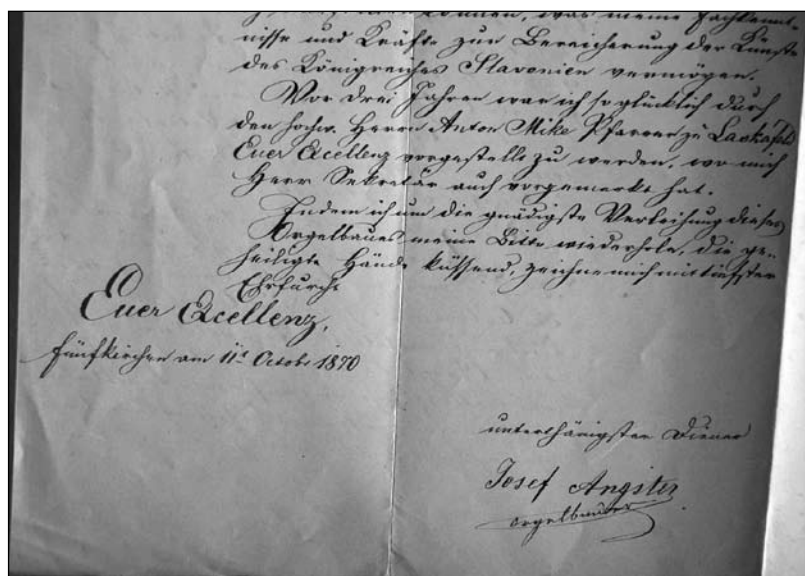 können, was meine Fachkennt-
nisse und Kräfte zur Bereicherung der Künste
des Königreiches Slavonien vermögen.
Vor drei Jahren war ich so glücklich durch
den hochw. Herrn Anton Mike Pfarrer zu Laskafeld
Euer Excellenz vorgestellt zu werden, wo mich
Herr Sekretär auch vorgemerkt hat.
Indem ich um die gnädigste Verleihung dieses
Orgelbaues meine Bitte wiederhole, die ge-
heiligte Hände küssend, zeichne mich mit tiefster
Ehrfurcht
Euer Excellenz,
Fünfkirchen am 11t Octob: 1870
unterthänigster Diener
Josef Angster
Orgelbauer